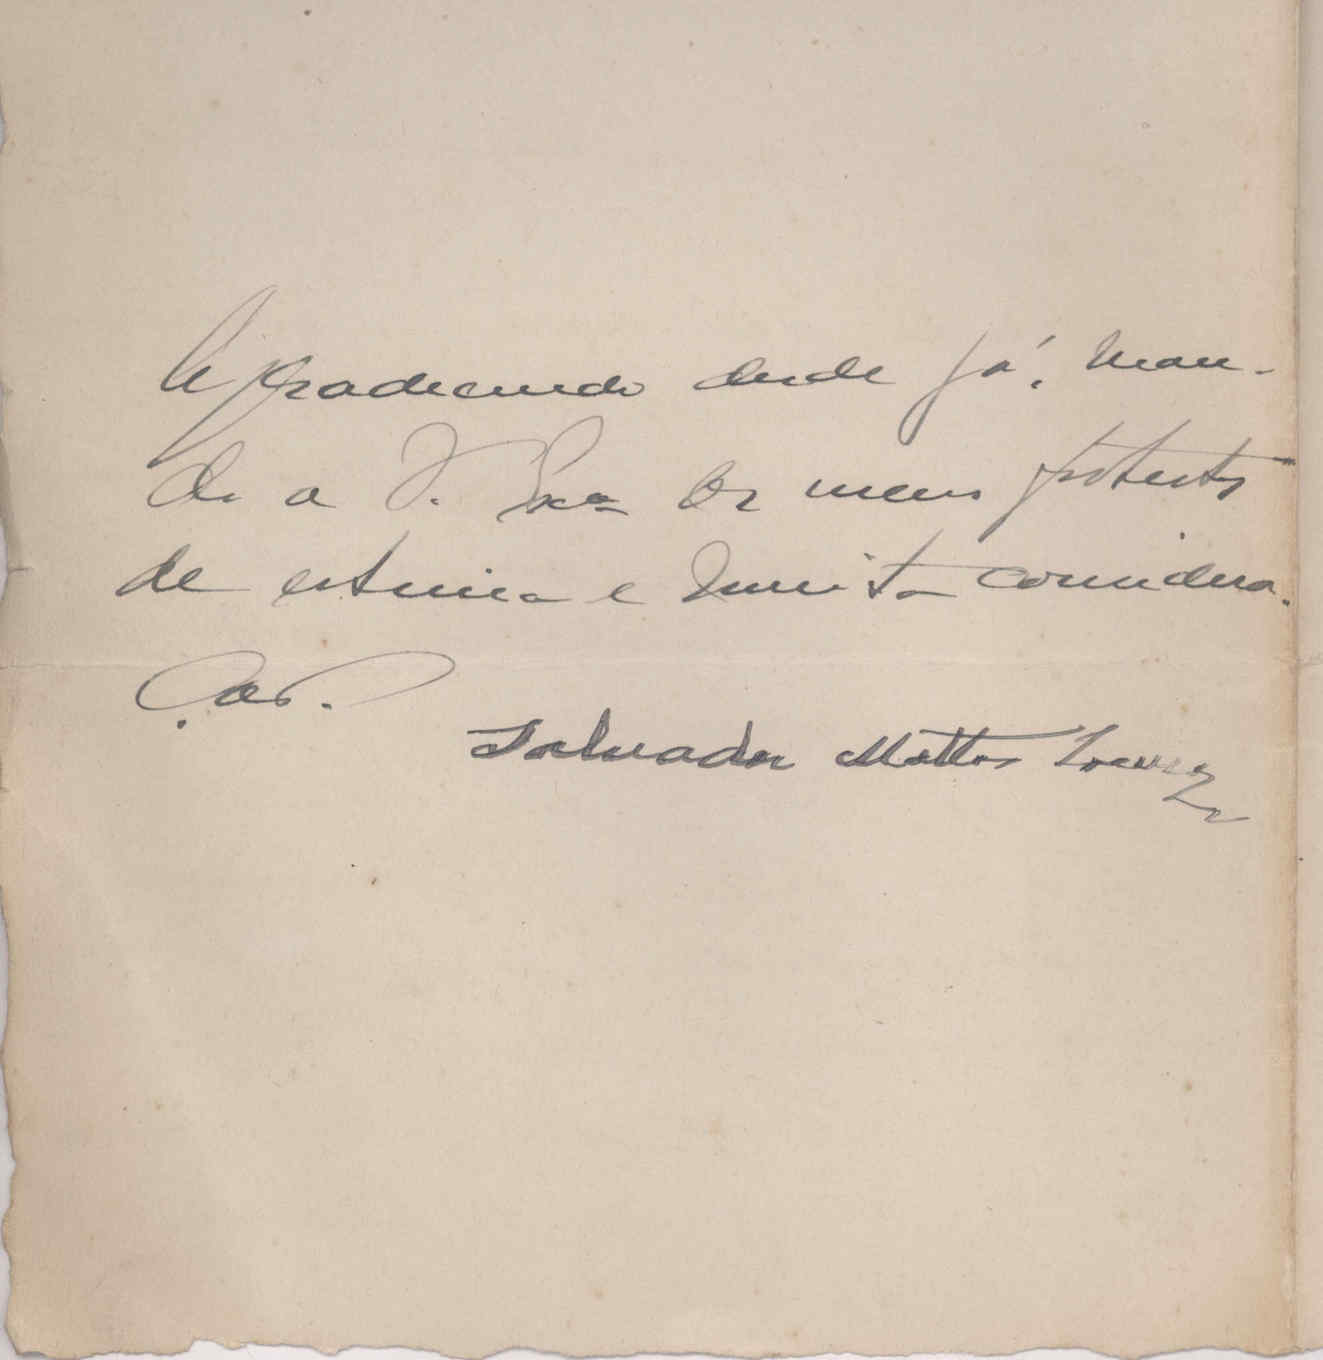 Agradecendo desde já, man-
do a V. Exa os meus protestos
de estima e muita considera-
ção.
Salvador Mattos